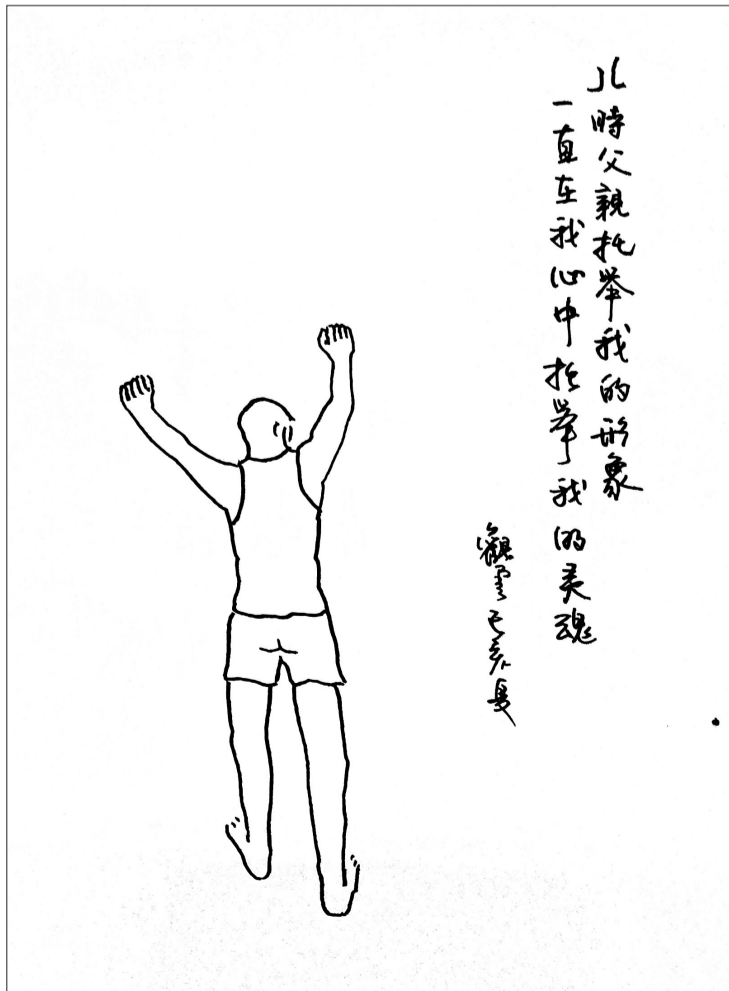 儿時父親托举我的形象
一直在我心中托举我的灵魂
觀雲己亥夏